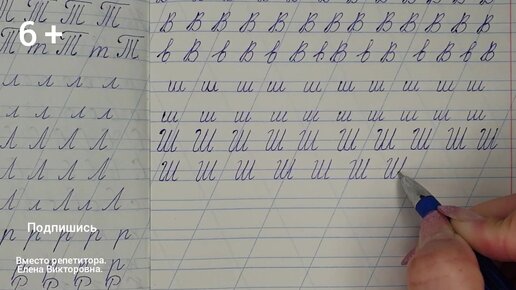 6+
Т Т Т Т
Т т Т т Т
л л л л
л л л л
Л Л Л Л
Л Л Л Л
Л Л Л Л Л
Подпишись
р р р р р
Вместо репетитора.
Елена Викторовна.
В В В В В В В В В В В В В В
в В в В в В в В в В в В в В
ш ш ш ш ш ш ш ш ш ш
ш ш ш ш ш ш ш ш ш ш
Ш Ш Ш Ш Ш Ш Ш Ш Ш Ш
Ш Ш Ш Ш Ш Ш Ш